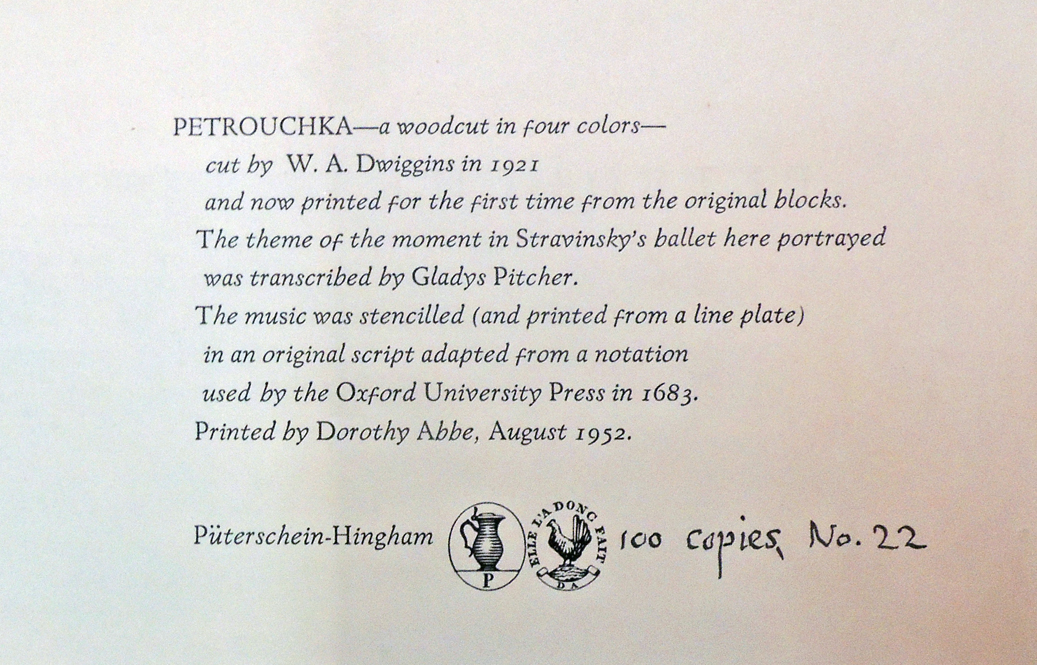 PETROUCHKA—a woodcut in four colors—
cut by W. A. Dwiggins in 1921
and now printed for the first time from the original blocks.
The theme of the moment in Stravinsky's ballet here portrayed
was transcribed by Gladys Pitcher.
The music was stencilled (and printed from a line plate)
in an original script adapted from a notation
used by the Oxford University Press in 1683.
Printed by Dorothy Abbe, August 1952.
Püterschein-Hingham P ELLE L'A DONC FAIT DA 100 copies, No. 22